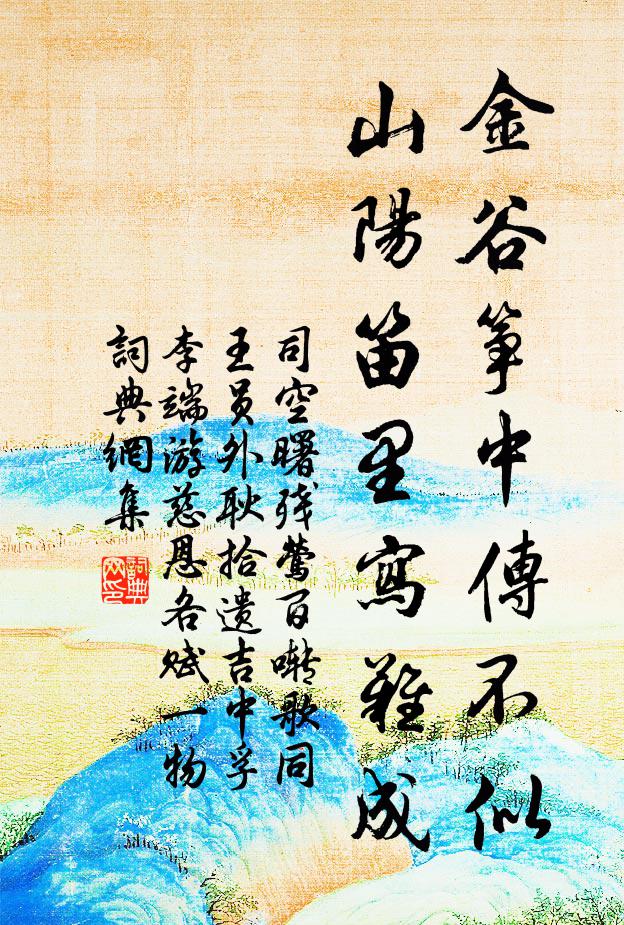 金谷筝中傳不似
山陽笛里寫難成
司空曙残鶯百囀歌同
王員外耿拾遺吉中孚
李端游慈恩各赋一物
詞典網集
詞典網印